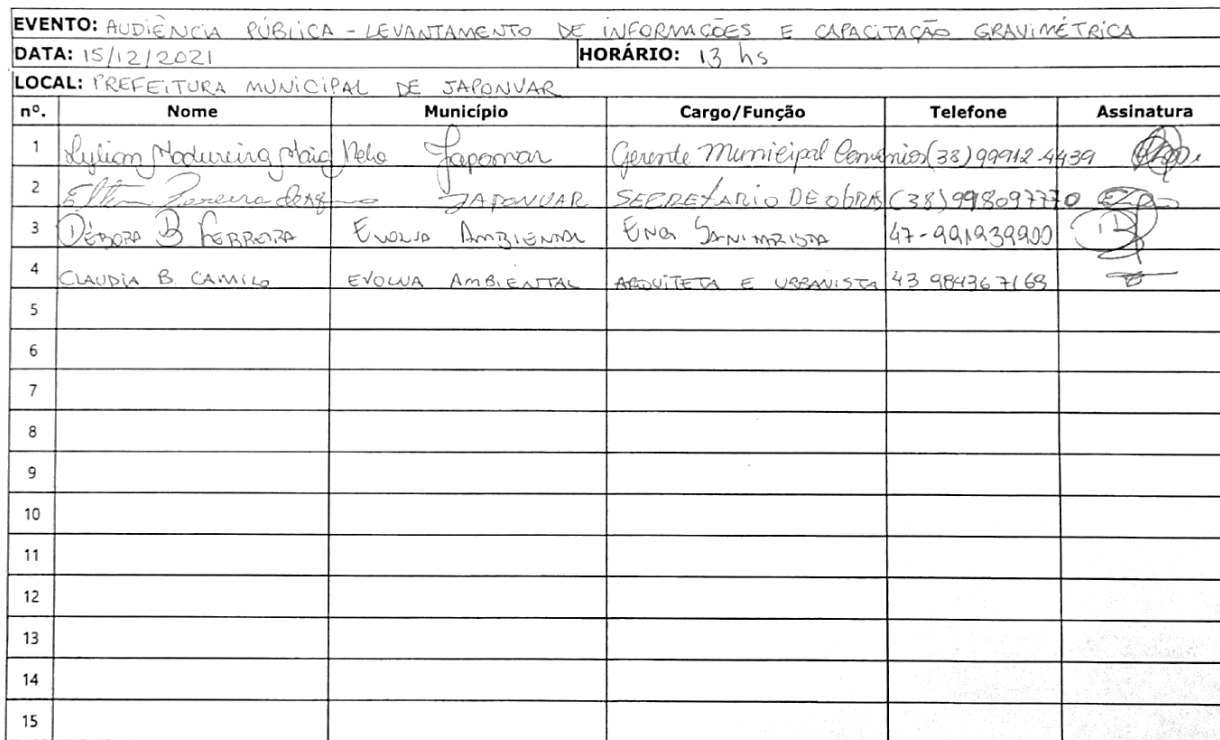 EVENTO: AUDIÊNCIA PÚBLICA - LEVANTAMENTO DE INFORMAÇÕES E CAPACITAÇÃO GRAVIMÉTRICA
DATA: 15/12/2021 HORÁRIO: 13 hs
LOCAL: PREFEITURA MUNICIPAL DE JAPONVAR
nº. Nome Município Cargo/Função Telefone Assinatura
1 Lylian Madureira Maia Melo Japonvar Gerente Municipal Convênios (38) 99912-4439
2 Pereira JAPONVAR SECRETARIO DE OBRAS (38) 998097770
3 DÉBORA B FERREIRA EVOLUA AMBIENTAL ENGª SANITARISTA 47-991939900
4 CLAUDIA B. CAMILO EVOLUA AMBIENTAL ARQUITETA E URBANISTA 43 984367169
5
6
7
8
9
10
11
12
13
14
15